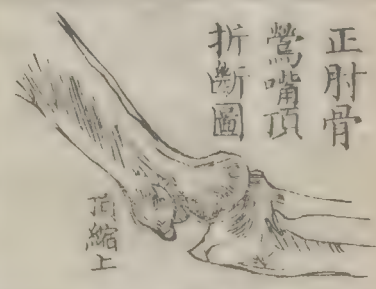 正肘骨
鶯嘴頂
折斷圖
肉縮上